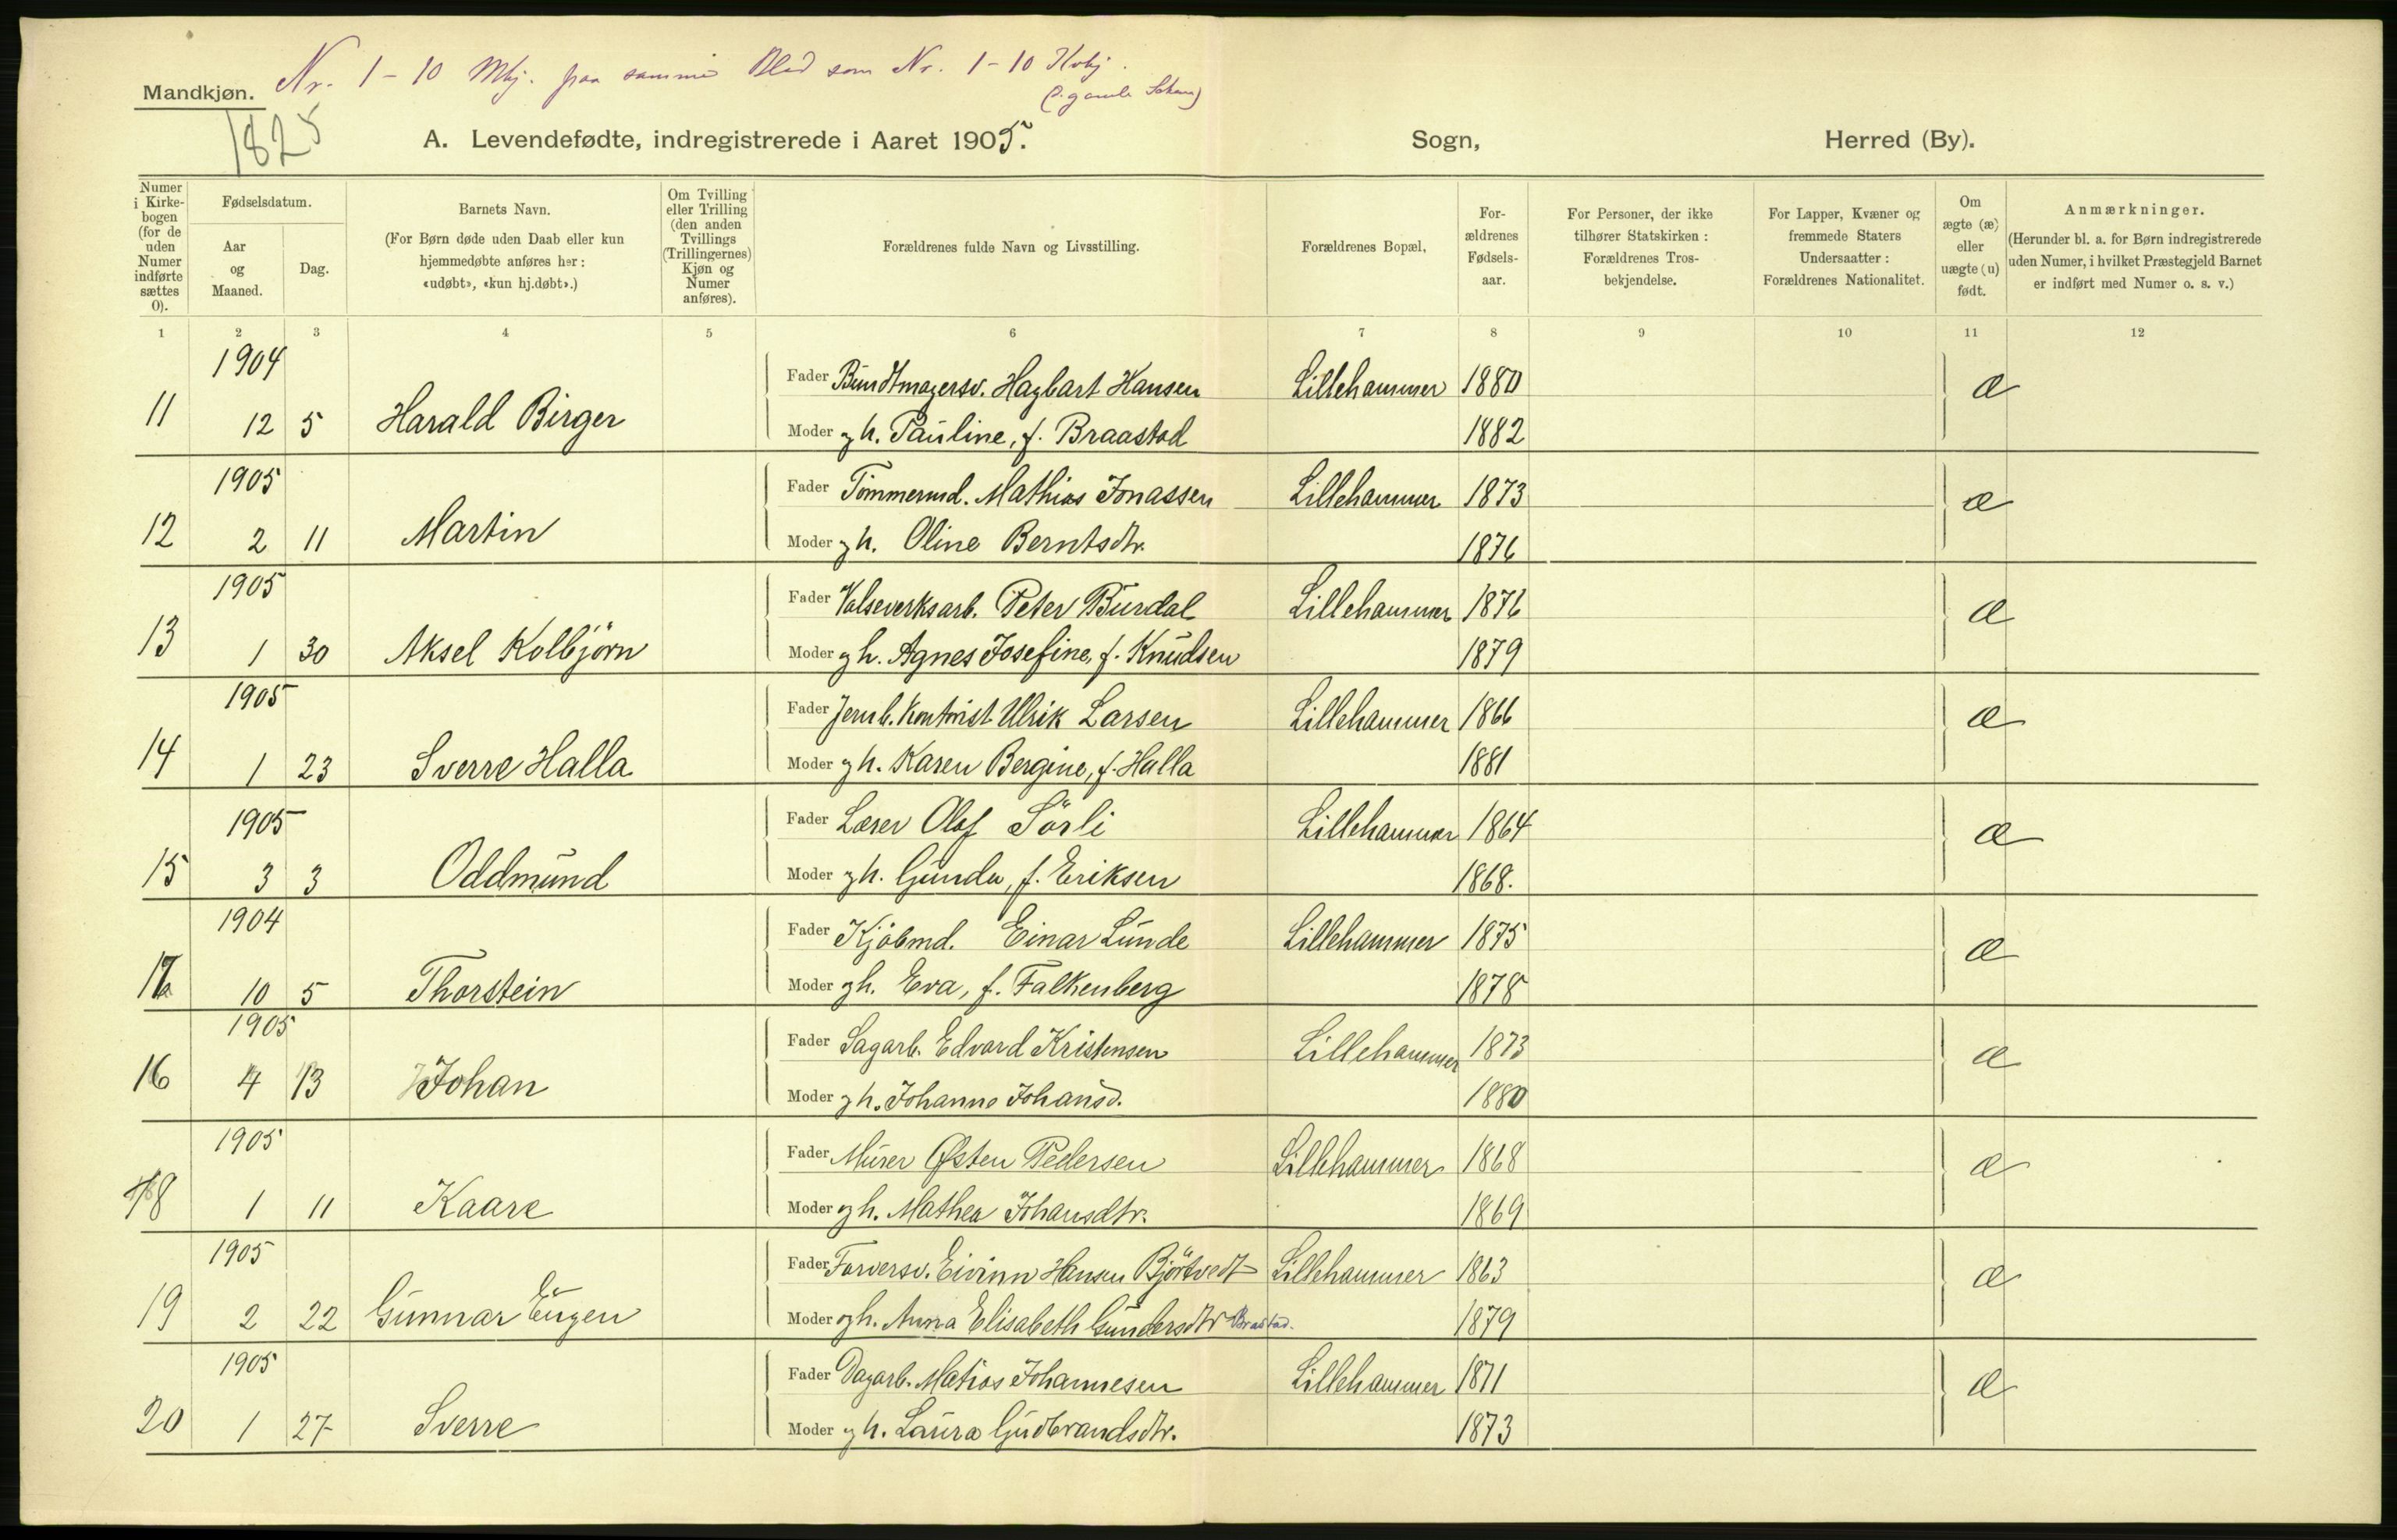 Mandkjøn. Nr. 1-10 Mkj. paa samme Blad som Nr. 1-10 Kvkj.
1825
A. Levendefødte, indregistrerede i Aaret 1905. Sogn, Herred (By).
Numer i Kirkebogen (for de uden Numer indførte sættes 0).
Fødselsdatum.
Aar og Maaned.
Dag.
Barnets Navn.
(For Børn døde uden Daab eller kun hjemmedøbte anføres her: «udøbt», «kun hj.døbt».)
Om Tvilling eller Trilling (den anden Tvillings (Trillingernes) Kjøn og Numer anføres).
Forældrenes fulde Navn og Livsstilling.
Forældrenes Bopæl,
Forældrenes Fødselsaar.
For Personer, der ikke tilhører Statskirken: Forældrenes Trosbekjendelse.
For Lapper, Kvæner og fremmede Staters Undersaatter: Forældrenes Nationalitet.
Om ægte (æ) eller uægte (u) født.
Anmærkninger.
(Herunder bl. a. for Børn indregistrerede uden Numer, i hvilket Præstegjeld Barnet er indført med Numer o. s. v.)
1 2 3 4 5 6 7 8 9 10 11 12
1904 Fader Bundtmagersv. Hagbart Hansen Lillehammer 1880 æ
11 12 5 Harald Birger Moder gh. Pauline, f. Braastad 1882
1905 Fader Tømmermd. Mathias Jonassen Lillehammer 1873 æ
12 2 11 Martin Moder gh. Oline Berntsdtr. 1876
1905 Fader Valseverksarb. Peter Burdal Lillehammer 1876 æ
13 1 30 Aksel Kolbjörn Moder gh. Agnes Josefine, f. Knudsen 1879
1905 Fader Jernb. Kontorist Ulrik Larsen Lillehammer 1866 æ
14 1 23 Sverre Halla Moder gh. Karen Bergine, f. Halla 1881
1905 Fader Lærer Olaf Sörli Lillehammer 1864 æ
15 3 3 Oddmund Moder gh. Gunda, f. Eriksen 1868.
1904 Fader Kjöbmd. Einar Lunde Lillehammer 1875 æ
10 5 Thorstein Moder gh. Eva, f. Falkenberg 1878
1905 Fader Sagarb. Edvard Kristensen Lillehammer 1873 æ
16 4 13 Johan Moder gh. Johanne Johansd. 1880
1905 Fader Murer Østen Pedersen Lillehammer 1868 æ
18 1 11 Kaare Moder gh. Mathea Johansdtr. 1869
1905 Fader Farversv. Eivinn Hansen Björtvedt Lillehammer 1863 æ
19 2 22 Gunnar Eugen Moder gh. Anna Elisabeth Gundersdtr Brastad. 1879
1905 Fader Dagarb. Matias Johannesen Lillehammer 1871 æ
20 1 27 Sverre Moder gh. Laura Gudbrandsdtr. 1873